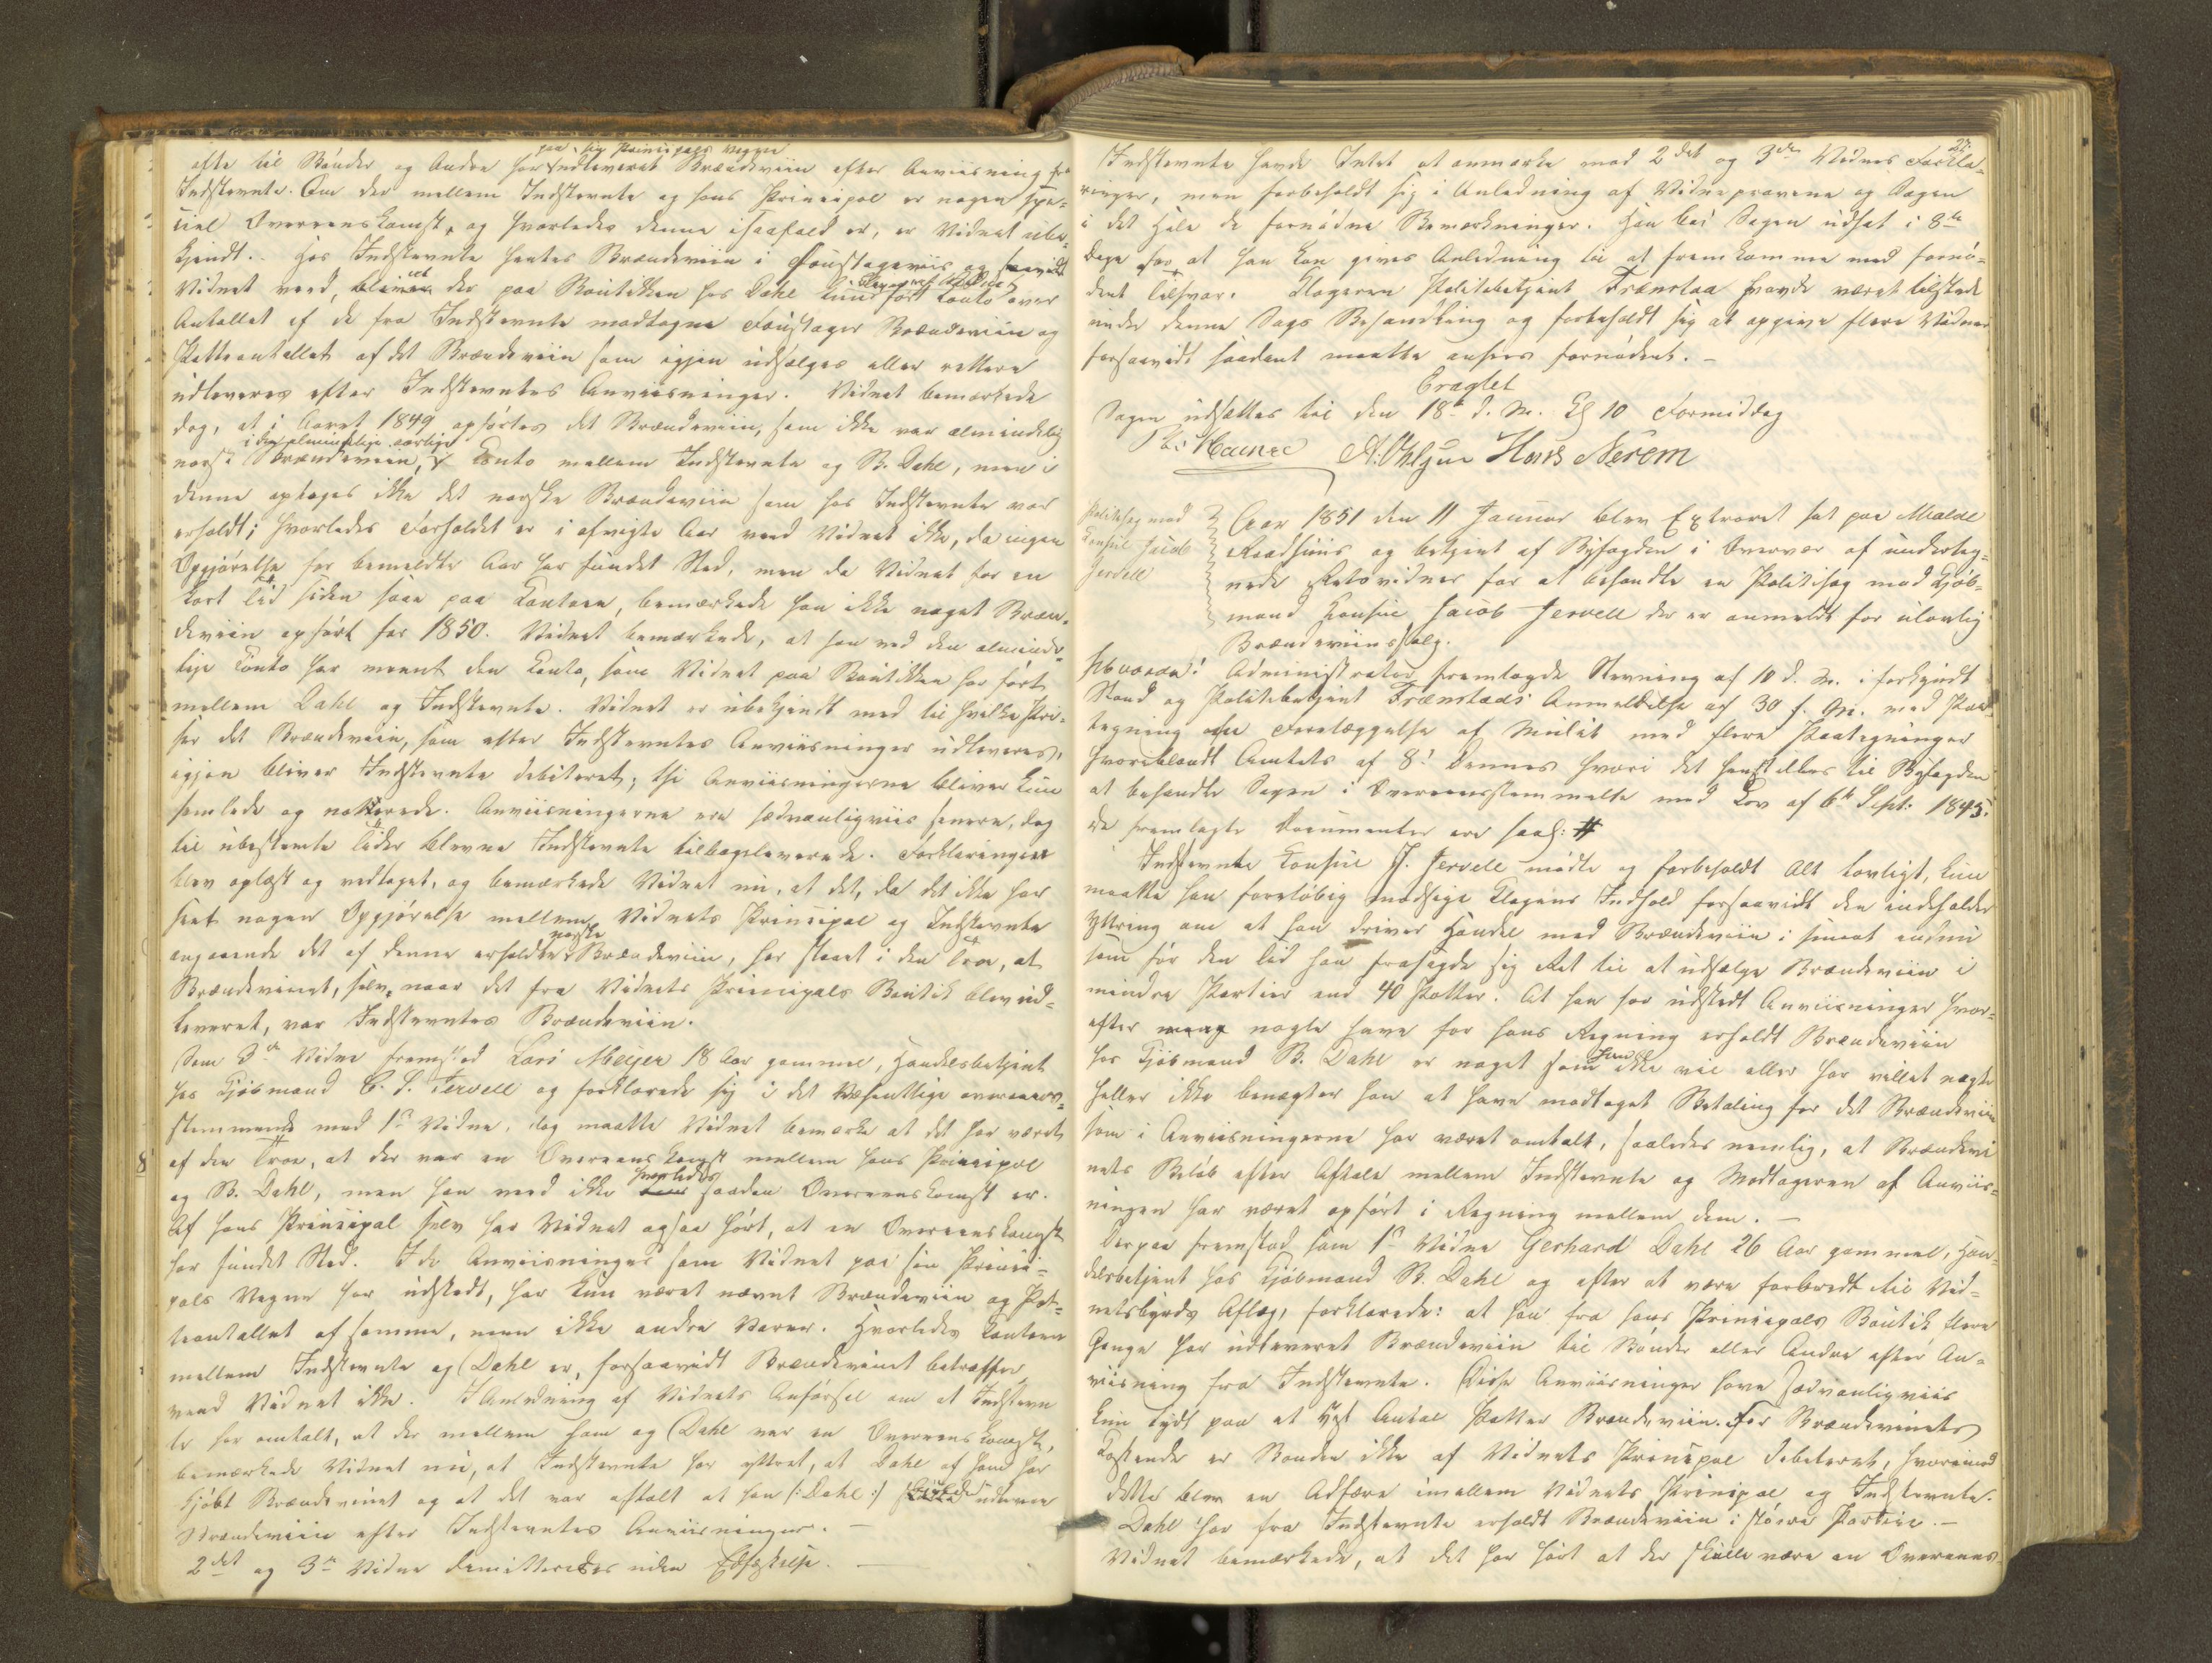 paa sin Principals Vegne
ofte til Bønder og Andre har indleveret Brændeviin efter Anviisning fra
Indstevnte. Om der mellem Indstevnte og hans Principal er nogen spe-
ciel Overeenskomst, og hvorledes denne isaafald er, er Vidnet ube-
kjendt. Hos Indstevnte hentes Brændeviin i Foustageviis og saavidt
Vidnet veed, bliver der paa Boutikken hos Dahl kun ført Conto over
Antallet af de fra Indstevnte modtagne Foustager Brændeviin og
Potteantallet af det Brændeviin som igjen udsælges eller rettere
udleveres efter Indstevntes Anviisninger. Vidnet bemærkede
dog, at i Aaret 1849 opførtes det Brændeviin, som ikke var almindelig
i den almindelige aarlige
norsk Brændeviin, Conto mellem Indstevnte og B. Dahl, men i
denne optoges ikke det norske Brændeviin som hos Indstevnte var
erholdt; hvorledes Forholdet er i afvigte Aar veed Vidnet ikke, da ingen
Opgjørelse for bemeldte Aar har fundet Sted, men da Vidnet for en
kort Tid siden saae paa Contoen, bemærkede han ikke noget Bræn-
deviin opført for 1850. Vidnet bemærkede, at han ved den alminde-
lige Conto har meent den Conto, som Vidnet paa Boutikken har ført
mellem Dahl og Indstevnte. Vidnet er ubekjendt med til hvilke Pri-
ser det Brændeviin, som efter Indstevntes Anviisninger udleveres,
igjen bliver Indstevnte debiteret; thi Anviisningerne bliver kun
samlede og noterede. Anviisningerne ere sædvanligviis senere, dog
til ubestemte Tider blevne Indstevnte tilbageleverede. Forklaringen
blev oplæst og vedtaget, og bemærkede Vidnet nu, at det, da det ikke har
seet nogen Opgjørelse mellem Vidnets Principal og Indstevnte
norske
angaaende det af denne erholdte Brændeviin, har staaet i den Troe, at
Brændevinet, selv naar det fra Vidnets Principals Boutik blev ud-
leveret, var Indstevntes Brændeviin.
Som 3die Vidne fremstod Lars Meyer 18 Aar gammel, Handelsbetjent
hos Kjøbmand C. P. Jervell og forklarede sig i det Væsentlige overeens-
stemmende med 1ste Vidne, dog maatte Vidnet bemærke at det har været
af den Troe, at der var en Overeenskomst mellem hans Principal
hvorledes
og B. Dahl, men han veed ikke saadan Overeenskomst er.
Af hans Principal selv har Vidnet ogsaa hørt, at en Overeenskomst
har fundet Sted. I de Anviisninger som Vidnet paa sin Princi-
pals Vegne har udstedt, har kun været nævnt Brændeviin og Pot-
teantallet af samme, men ikke andre Varer. Hvorledes Contoen
mellem Indstevnte og Dahl er, forsaavidt Brændevinet betræffer
veed Vidnet ikke. I Anledning af Vidnets Anførsel om at Indstevn
te har omtalt, at der mellem ham og Dahl var en Overeenskomst,
bemærkede Vidnet nu, at Indstevnte har yttret, at Dahl af ham har
kjøbt Brændevinet og at det var aftalt at han /: Dahl :/ skulde udlevere
Brændeviin efter Indstevntes Anviisninger. —
2det og 3die Vidne demitteredes uden Edfæstelse. —
27.
Indstevnte havde Intet at anmærke mod 2det og 3die Vidnes Forkla-
ringer, men forbeholdt sig i Anledning af Vidneprovene og Sagen
i det Hele de fornødne Bemærkninger. Han bad Sagen udsat i 8te
Dage for at han kan gives Anledning til at fremkomme med fornø-
dent Tilsvar. Klageren Politibetjent Frænstad havde været tilstede
under denne Sags Behandling og forbeholdt sig at opgive flere Vidner
forsaavidt saadant maatte ansees fornødent. —
Eragtet
Sagen udsættes til den 18de d. M. Kl 10 Formiddag
A. Ohlgun Hans Nerem
Politisag mod
Consul Jacob
Jervell
Aar 1851 den 11 Januar blev Extraret sat paa Molde
Raadhuus og betjent af Byfogden i Overvær af underteg-
nede Retsvidner for at behandle en Politisag mod Kjøb-
mand Consul Jacob Jervell der er anmeldt for ulovlig
Brændeviinssalg.
Hvorda! Administrator fremlagde Stevning af 10 d. M. i forkyndt
Stand og Politibetjent Frænstads Anmeldelse af 30 f. M. med Paa-
tegning om Forelæggelse af Mulct med flere Paategninger
hvoriblandt Amtets af 8de Dennes hvori det henstilles til Byfogden
at behandle Sagen i Overeensstemmelse med Lov af 6te Sept: 1845.
De fremlagte Documenter ere saal: #
Indstevnte Consul J. Jervell mødte og forbeholdt Alt lovligt, kun
maatte han foreløbig modsige Klagens Indhold forsaavidt den indeholder
Yttring om at han driver Handel med Brændeviin i smaat endnu
som før den Tid han frasagde sig Ret til at udsælge Brændeviin i
mindre Partier end 40 Potter. At han har udstedt Anviisninger hvor-
efter nogle have for hans Regning erholdt Brændeviin
hos Kjøbmand B. Dahl er noget som han ikke vil eller har villet nægte
heller ikke benægter han at have modtaget Betaling for det Brændeviin
som i Anviisningerne har været omtalt, saaledes nemlig, at Brændevi
nets Beløb efter Aftale mellem Indstevnte og Modtageren af Anviis-
ningen har været opført i Regning mellem dem. —
Derpaa fremstod som 1ste Vidne Gerhard Dahl 26 Aar gammel, Han-
delsbetjent hos Kjøbmand B. Dahl og efter at være forberedt til Vid-
nesbyrds Aflæg, forklarede: at han fra hans Principals Boutik flere
Gange har udleveret Brændeviin til Bønder eller Andre efter An-
viisning fra Indstevnte. Disse Anviisninger have sædvanligviis
kun lydt paa et vist Antal Potter Brændeviin. For Brændevinets
Kostende er Bonden ikke af Vidnets Principal debiteret, hvorimod
dette blev en Affære imellem Vidnets Principal og Indstevnte.
Dahl har fra Indstevnte erholdt Brændeviin i større Partier. —
Vidnet bemærkede, at det har hørt at der skulle være en Overeens